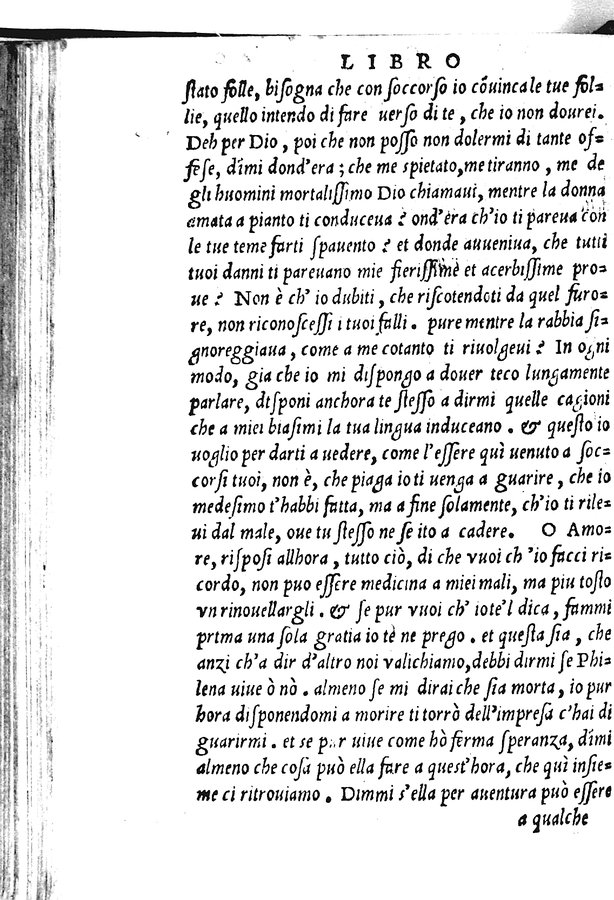 LIBRO
ſtato folle, biſogna che con ſoccorſo io cõuinca le tue fol=
lie, quello intendo di fare uerſo di te, che io non dourei.
Deh per Dio, poi che non poſſo non dolermi di tante of=
feſe, dimi dond'era; che me spietato, me tiranno, me de
gli huomini mortaliſſimo Dio chiamaui, mentre la donna
amata a pianto ti conduceua? ond'era ch'io ti pareua con
le tue teme farti ſpauento? et donde aueniua, che tutti
tuoi danni ti pareuano mie fieriſſime et acerbiſſime pro=
ue? Non è ch'io dubiti, che riſcotendoti da quel furo=
re, non riconoſceſſi i tuoi falli. pure mentre la rabbia ſi=
gnoreggiaua, come a me cotanto ti riuolgeui? In ogni
modo, gia che io mi diſpongo a douer teco lungamente
parlare, diſponi anchora te ſteſſo a dirmi quelle cagioni
che a miei biaſimi la tua lingua induceano. & queſto io
uoglio per darti a uedere, come l'eſſere quì uenuto a ſoc=
corſi tuoi, non è, che piaga io ti uenga a guarire, che io
medeſimo t'habbi fatta, ma a fine ſolamente, ch'io ti rile=
ui dal male, oue tu ſteſſo ne ſe ito a cadere. O Amo=
re, riſpoſi allhora, tutto ciò, di che vuoi ch'io facci ri=
cordo, non puo eſſere medicina a miei mali, ma piu toſto
vn rinouellargli. & ſe pur vuoi ch'io te'l dica, fammi
prima una ſola gratia io tè ne prego. et queſta ſia, che
anzi ch'a dir d'altro noi valichiamo, debbi dirmi ſe Phi=
lena uiue ò nò. almeno ſe mi dirai che ſia morta, io pur
hora diſponendomi a morire ti torrò dell'impreſa c'hai di
guarirmi. et se pur uiue come hò ferma ſperanza, dimi
almeno che coſa può ella fare a queſt'hora, che quì inſie=
me ci ritrouiamo. Dimmi s'ella per auentura può eſſere
a qualche